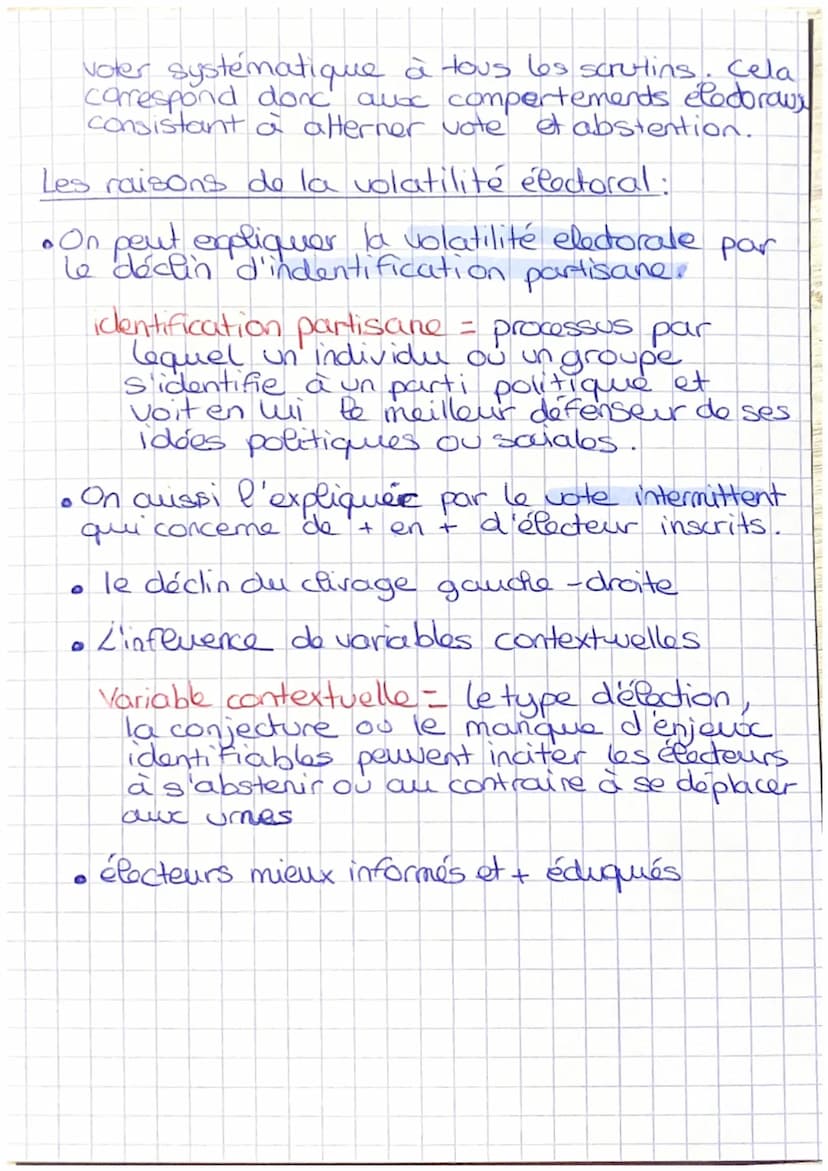 voter systématique à tous les scrutins. Cela
correspond donc aux compertements électoraux
consistant à alterner vote et abstention.
Les raisons de la volatilité électoral :
• On peut expliquer la volatilité electorale par
le déclin d'indentification partisane.
identification partisane = processus par
lequel un individu ou un groupe
s'identifie à un parti politique et
voit en lui le meilleur défenseur de ses
idées politiques ou sociales.
• On aussi l'expliquér par le vote intermittent
qui concerne de + en + d'électeur inscrits.
• le déclin du clivage gauche - droite
• L'influence de variables contextuelles
Variable contextuelle = le type d'élection,
la conjecture ou le manque d'enjeux
identifiables peuvent inciter les électeurs
à s'abstenir ou au contraire à se déplacer
aux urnes
• électeurs mieux informés et + éduqués